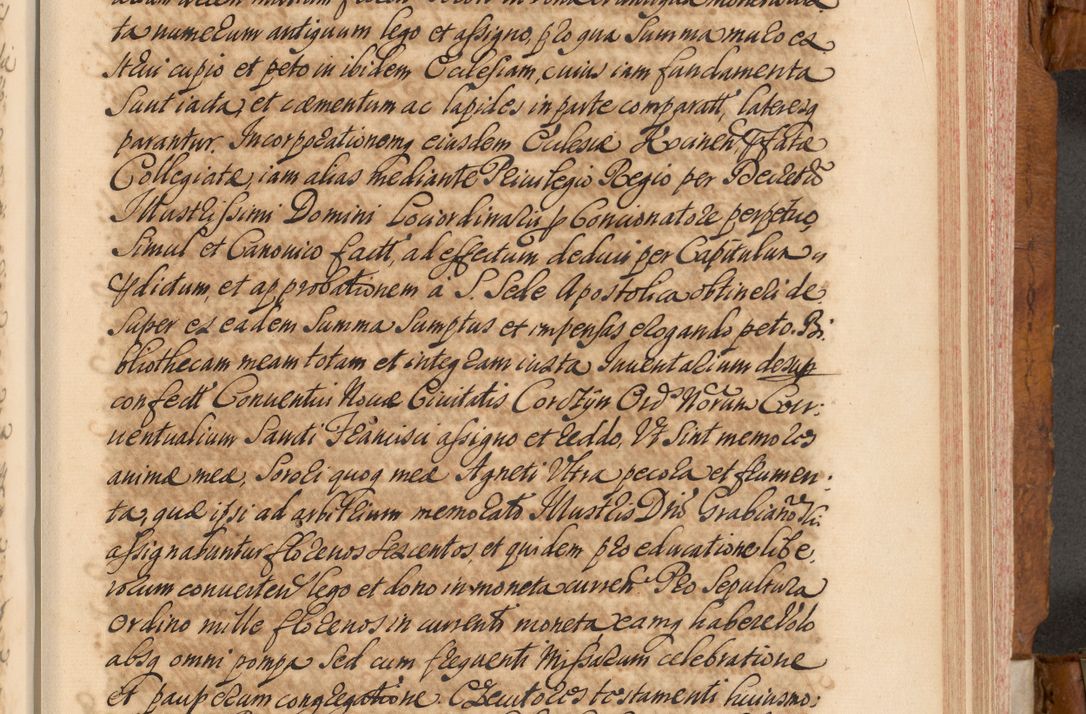 ta numerum antiquum lego et assigno, pro qua Summa muro ex
strui cupio et peto in ibidem Ecclesiam, cuius iam fundamenta
Sunt iacta, et cæmentum ac lapides in parte comparati, lateresq
parantur. Incorporationemq eiusdem Ecclesiæ
Collegiatæ, iam alias mediante Privilegio Regio per Decretū
Illustrissimi Domini Lociordinarii p Concionatore perpetuo,
Simul et Canonico facti, ad effectum deduci per Capitulum
dictum, et approbationem à S. Sede Apostolica obtineri de,
Super ex eadem Summa Sumptus et impensas erogando peto. Bi:
bliothecam meam totam et integram iuxta Inventarium desup
confectū Conventui Novæ Civitatis Corczÿn Ord. Norum Con:
ventualium Sancti Francisci assigno et reddo, Vt Sint memores
animæ meæ, Sorori quoq meæ Agneti Vltra pecora et frumen:
ta, quæ ipsi ad arbitrium memorati Illustris Dni Grabiańs
assignabuntur florenos sexcentos, et quidem pro educatione libe,
rorum converten lego et dono in moneta curren. Pro Sepultura
ordino mille florenos in currenti moneta eamq habere Volo
absq omni pompa Sed cum frequenti Missarum celebratione
et pauperum congregatione. Executores testamenti huiusmo: